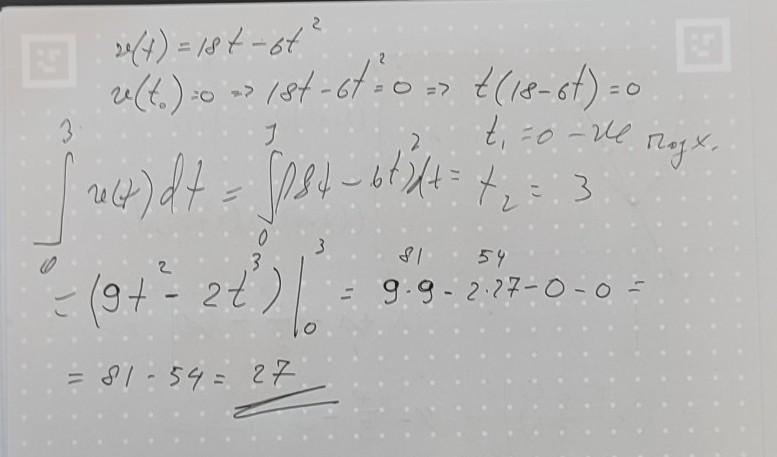 v(t) = 18t - 6t²
v(t₀) = 0 => 18t - 6t² = 0 => t(18 - 6t) = 0
t₁ = 0 - не подх.
∫₀³ v(t)dt = ∫₀³ (18t - 6t²)dt = t₂ = 3
= (9t² - 2t³)|₀³ = 9·9 - 2·27 - 0 - 0 =
81 54
= 81 - 54 = 27